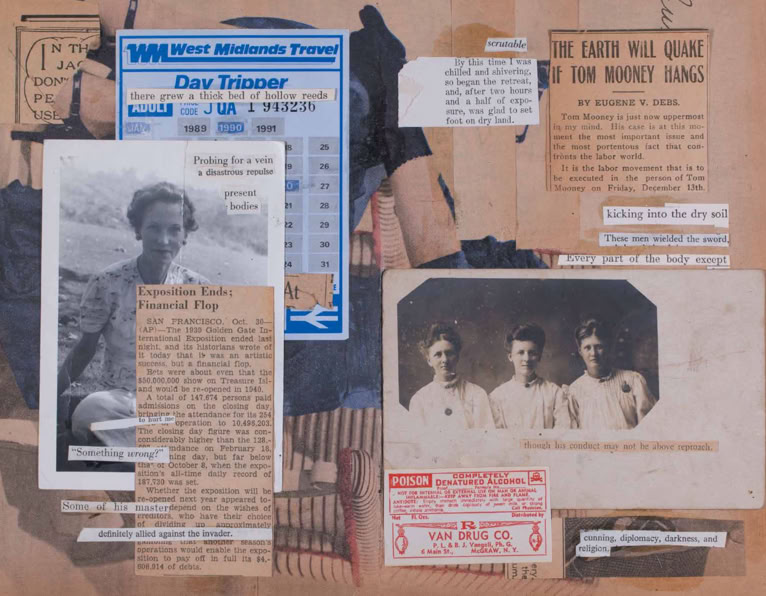 IN TH
JAC
DON'
PE
USE
West Midlands Travel
Day Tripper
there grew a thick bed of hollow reeds
ADULT
CODE J QA 1 943236
JAN
1989 1990 1991
25
26
27
28
29
30
31
At
Probing for a vein
a disastrous repulse
present
bodies
Exposition Ends;
Financial Flop
SAN FRANCISCO, Oct. 30—
(AP)—The 1939 Golden Gate In-
ternational Exposition ended last
night, and its historians wrote of
it today that it was an artistic
success, but a financial flop.
Bets were about even that the
$50,000,000 show on Treasure Isl-
and would be re-opened in 1940.
A total of 147,674 persons paid
admissions on the closing day,
bringing the attendance for its 254
operation to 10,496,203.
to hurt me
The closing day figure was con-
considerably higher than the 128,-
attendance on February 18,
"Something wrong?"
ning day, but far below
that of October 8, when the expo-
sition's all-time daily record of
187,730 was set.
Whether the exposition will be
re-opened next year appeared to
Some of his master
depend on the wishes of
creditors, who have their choice
of dividing up approximately
definitely allied against the invader.
gambling that another season's
operations would enable the expo-
sition to pay off in full its $4,-
of debts.
scrutable
By this time I was
chilled and shivering,
so began the retreat,
and, after two hours
and a half of expo-
sure, was glad to set
foot on dry land.
THE EARTH WILL QUAKE
IF TOM MOONEY HANGS
BY EUGENE V. DEBS.
Tom Mooney is just now uppermost
in my mind. His case is at this mo-
ment the most important issue and
the most portentous fact that con-
fronts the labor world.
It is the labor movement that is to
be executed in the person of Tom
Mooney on Friday, December 13th.
kicking into the dry soil
These men wielded the sword,
Every part of the body except
though his conduct may not be above reproach.
POISON
COMPLETELY
DENATURED ALCOHOL
NOT FOR INTERNAL OR EXTERNAL USE ON MAN OR ANIMAL
INFLAMMABLE—KEEP AWAY FROM FIRE AND FLAME.
Call Physician.
Distributed by
VAN DRUG CO.
P. L. & B. J. Vangeli, Ph. G.
6 Main St., McGRAW, N. Y.
cunning, diplomacy, darkness, and
religion.